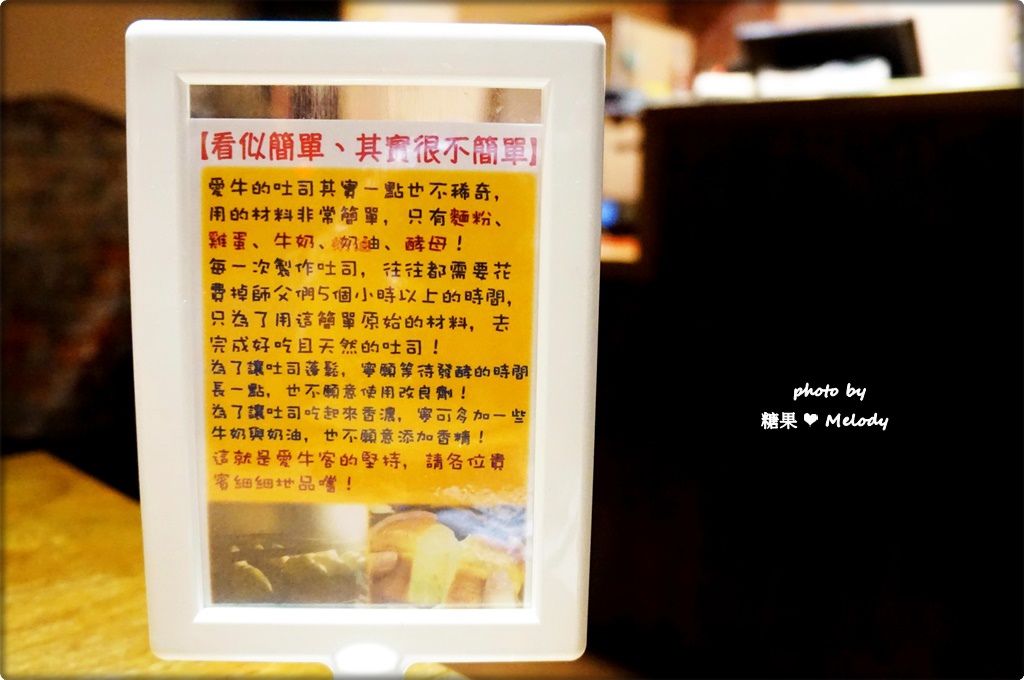 【看似簡單、其實很不簡單】
愛牛的吐司其實一點也不稀奇，
用的材料非常簡單，只有麵粉、
雞蛋、牛奶、奶油、酵母！
每一次製作吐司，往往都需要花
費掉師父們5個小時以上的時間，
只為了用這簡單原始的材料，去
完成好吃且天然的吐司！
為了讓吐司蓬鬆，寧願等待發酵的時間
長一點，也不願意使用改良劑！
為了讓吐司吃起來香濃，寧可多加一些
牛奶與奶油，也不願意添加香精！
這就是愛牛客的堅持，請各位貴
賓細細地品嚐！
photo by
糖果 ❤ Melody